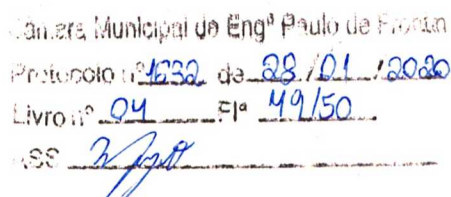 Câmara Municipal de Engº Paulo de Frontin
Protocolo nº 1632 de 28 / 01 / 2020
Livro nº 04 Flª 49/50
ASS